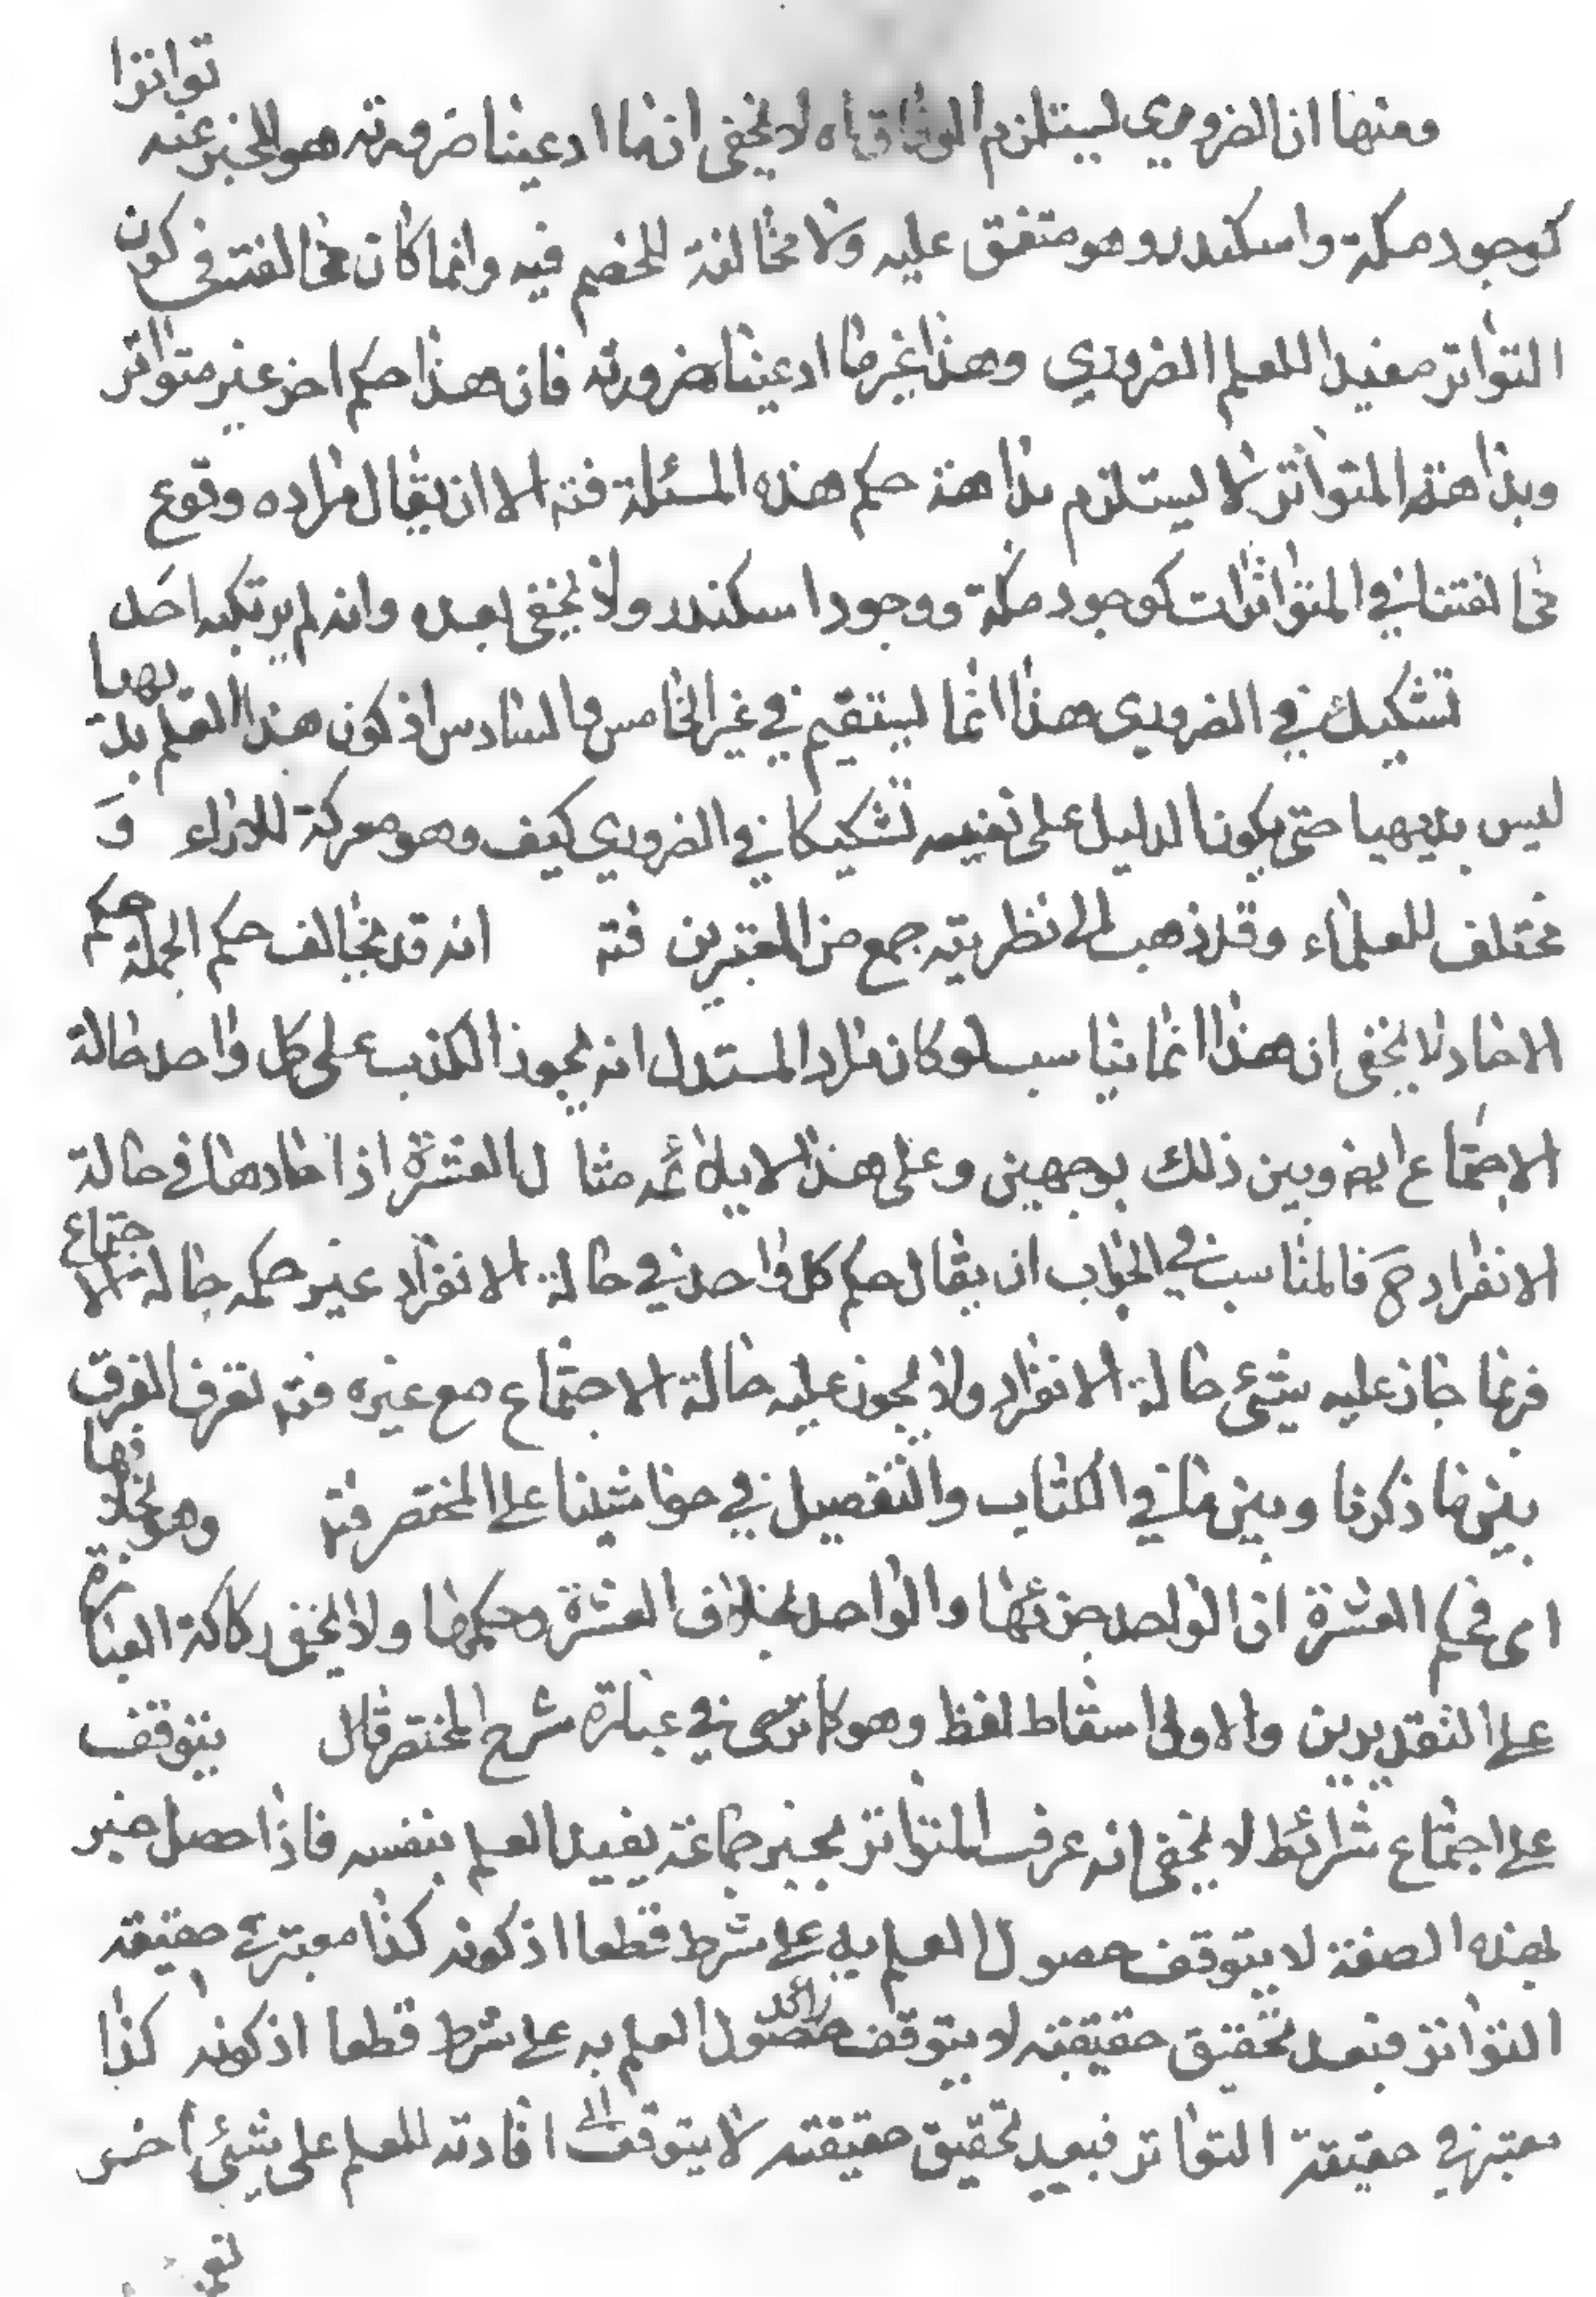 ومنها ان الضروري ليستلزم الوفاق اه لا يخفى ان ما ادعينا ضرورته هو المخبر عنه تواترا
كوجود مكة واسكندر وهو متفق عليه ولا مخالفة للخصم فيه وانما كان مخالفته في كون
التواتر مفيدا للعلم الضروري وهذا غير ما ادعينا ضرورته فان هذا حكم اخر غير متواتر
وبداهة المتواتر لا يستلزم بداهة حكم هذه المسئلة فتم الا ان يقال مراده وقوع
مخالفتنا في المتواترات كوجود مكة ووجود اسكندر ولا يخفى بعده وانه لم يرتكبه احد
تشكيك في الضروري هذا انما يستقيم في غير الخامس والسادس اذ كون هذا العلم بديهيا
ليس بديهيا حتى يكون الدليل على نفيه تشكيكا في الضروري كيف وهو معركة للاراء و
مختلف للعلماء وقد ذهب الى نظريته جمع من المعتبرين فتم انه قد يخالف حكم الجملة حكم
الاحاد لا يخفى ان هذا انما يناسب لو كان مراد المستدل انه يجوز الكذب على كل واحد حالة
الاجتماع ايض وبين ذلك بوجهين وعلى هذا لا يلائمه مثال العشرة اذ احادها في حالة
الانفراد ح فالمناسب في الجواب ان يقال حكم كل واحد في حالة الانفراد غير حكمه حالة الاجتماع
فربما جاز عليه شيء حالة الانفراد ولا يجوز عليه حالة الاجتماع مع غيره فتم تعرف الفرق
بين ما ذكرنا وبين ما في الكتاب والتفصيل في حواشينا على المختصر فتم وهو بخلافها
اى في حكم العشرة ان الواحد جزئها والواحد بخلاف العشرة وحكمها ولا يخفى ركاكة العبارة
على التقديرين والاولى اسقاط لفظ وهو كما ترى في عبارة شرح المختصر قال يتوقف
على اجتماع شرائط لا يخفى انه عرف المتواتر بخبر جماعة يفيد العلم بنفسه فاذا حصل خبر
بهذه الصفة لا يتوقف حصول العلم به على شرط قطعا اذ كونه كذا معتبر في حقيقة
التواتر فبعد تحقيق حقيقته لا يتوقف حصول العلم به على شرط زائد قطعا اذ كونه كذا
معتبر في حقيقة التواتر فبعد تحقيق حقيقته لا يتوقف افادته للعلم على شيء اخر